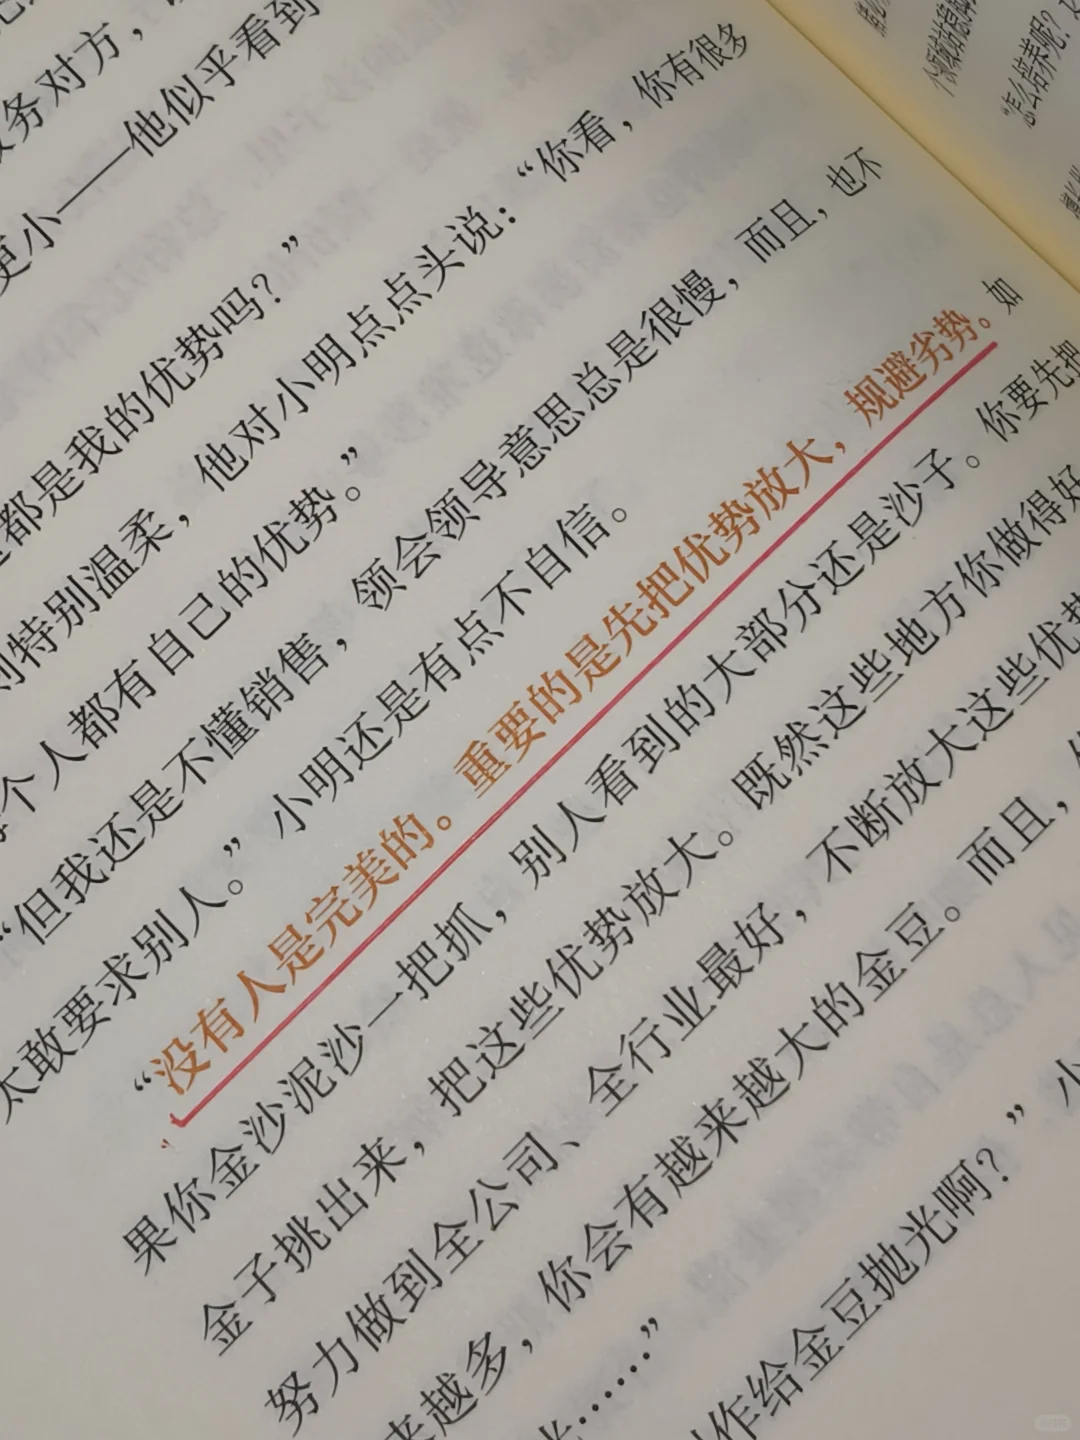 务对方，
更小——他似乎看到
都是我的优势吗？”
特别温柔，他对小明点点头说：“你看，你有很多
个人都有自己的优势。”
“但我还是不懂销售，领会领导意思总是很慢，而且，也不
太敢要求别人。”小明还是有点不自信。
“没有人是完美的。重要的是先把优势放大，规避劣势。如
果你金沙泥沙一把抓，别人看到的大部分还是沙子。你要先把
金子挑出来，把这些优势放大。既然这些地方你做得好
努力做到全公司、全行业最好，不断放大这些优势
来越多，你会有越来越大的金豆。而且，
……”
作给金豆抛光啊？”小
怎么培养呢？